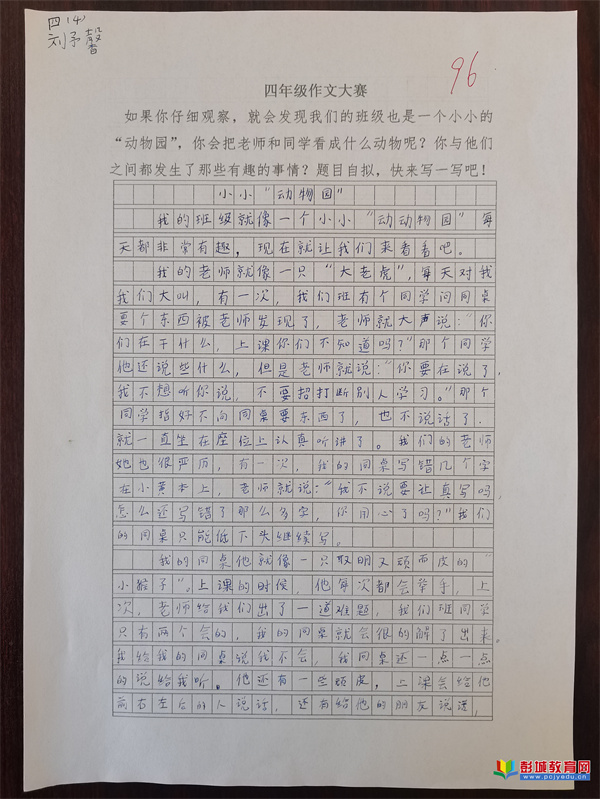 四(4)
刘予馨
96
四年级作文大赛
如果你仔细观察，就会发现我们的班级也是一个小小的
“动物园”，你会把老师和同学看成什么动物呢？你与他们
之间都发生了那些有趣的事情？题目自拟，快来写一写吧！
小小“动物园”
我的班级就像一个小小“动动物园”每
天都非常有趣，现在就让我们来看看吧。
我的老师就像一只“大老虎”，每天对我
我们大叫，有一次，我们班有个同学问同桌
要个东西被老师发现了，老师就大声说：“你
们在干什么，上课你们不知道吗？”那个同学
他还说些什么，但是老师就说：“你要在说了，
我不想听你说，不要招打断别人学习。”那个
同学指好不向同桌要东西了，也不说话了.
就一直坐在座位上认真听讲了。我们的老师
她也很严厉，有一次，我的同桌写错几个字
在小黄本上，老师就说：“我不说要让真写吗，
怎么还写错了那么多字，你用心了吗？”我们
的同桌只能低下头继续写。
我的同桌他就像一只取明又顽而皮的“
小猴子”，上课的时候，他每次都会举手，上
次，老师给我们出了一道难题，我们班同学
只有两个会的，我的同桌就会很的解了出来。
我给我的同桌说我不会，我同桌还一点一点
的说给我听。他还有一些顽皮，上课会给他
前右左后的人说话，还有给他的朋友说话，
彭城教育网
www.pcjyedu.cn